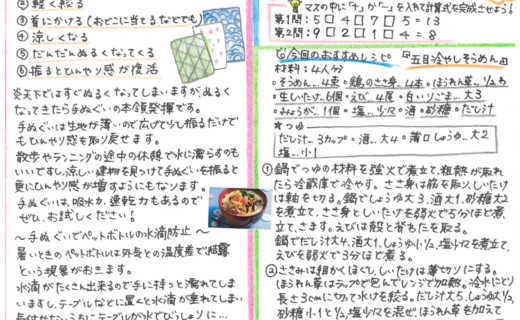 ② 軽く絞る
③ 首にかける(おでこに当てるなどでも)
④ 涼しくなる
⑤ だんだんぬるくなってくる
⑥ 振るとひんやり感が復活
炎天下ではすぐぬるくなってしまいますが、ぬるく
なってきたら手ぬぐいの本領発揮です。
手ぬぐいは生地が薄いので広げて少し振るだけで
もひんやり感を取り戻せます。
散歩やランニングの途中の休憩で水に濡らすのも
いいですし、涼しい建物を見つけて手ぬぐいを振ると
更にひんやり感が増すようにもなります。
手ぬぐいは、吸水力、速乾力もあるので
ぜひ、お試しください!
〜手ぬぐいでペットボトルの水滴防止〜
暑いときのペットボトルは外気との温度差で結露
という現象がおきます。
水滴がたくさん出来るので手に持つと濡れてしま
いますし、テーブルなどに置くと水滴が垂れてしまい
気付かないうちにテーブルが水でびっしょりに…
マスの中に「+」か「-」を入れて計算式を完成させよう!
第1問:5□4□7□5=13
第2問:9□2□1□4=8
今回のおすすめレシピ 『五目冷やしそうめん』
材料:4人分
・そうめん…4束 ・鶏のささ身…4本 ・ほうれん草…1/2わ
・生しいたけ…6個 ・えび…4尾 ・白いりごま…大3
・みょうが…1個 ・塩…少々 ・酒 ・砂糖 ・だし汁
*つゆ
だし汁…3カップ ・酒…大4 ・薄口しょうゆ…大2
塩…小1
① 鍋でつゆの材料を強火で煮立て、粗熱が取れ
たら冷蔵庫で冷やす。ささ身は筋を取り、しいたけ
は軸を切る。鍋でしょうゆ大3、酒大1、砂糖大2
を煮立て、ささ身としいたけを弱火で5分ほど煮
立て、さます。えびは殻と背わたを取る。
鍋でだし汁大4、酒大1、しょうゆ小1/2、塩少々を煮立て、
えびを弱火で3分ほど煮る。
② ささみは粗かくほぐし、しいたけは薄切りにする。
ほうれん草はラップで包んでレンジで加熱。冷水にとり
長さ3cmに切って水けを絞る。だし汁大5、しょうゆ大1/2、
砂糖小1と1/2、塩少々を混ぜ、ほうれん草を加えて